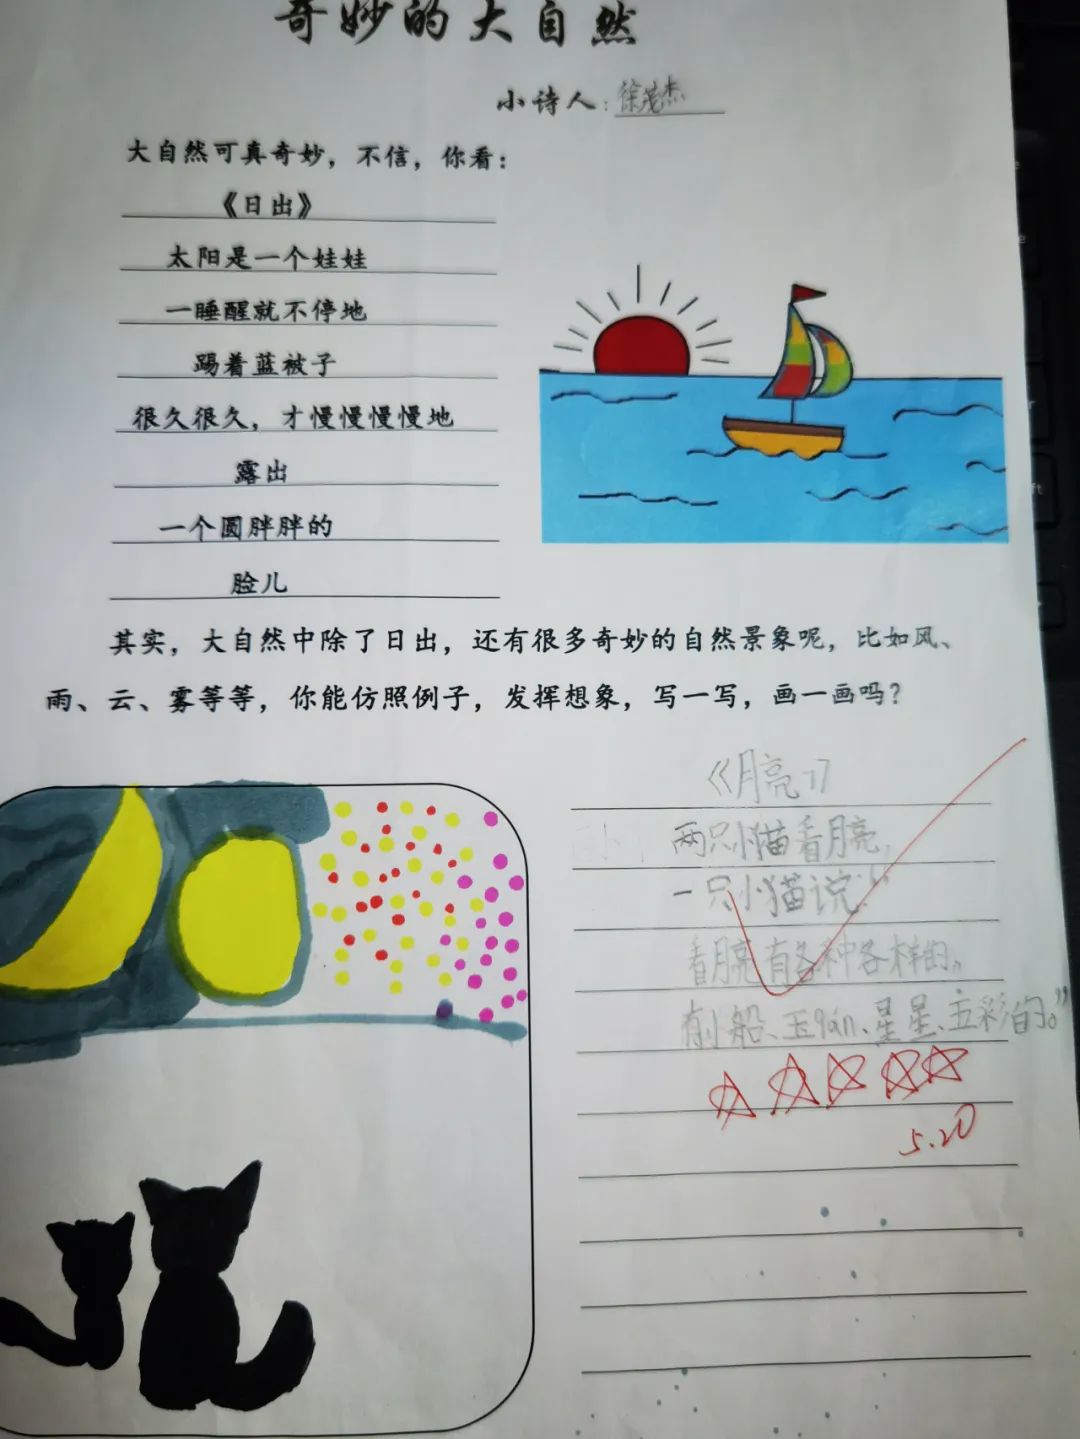 奇妙的大自然
小诗人：徐茂杰
大自然可真奇妙，不信，你看：
《日出》
太阳是一个娃娃
一睡醒就不停地
踢着蓝被子
很久很久，才慢慢慢慢地
露出
一个圆胖胖的
脸儿
其实，大自然中除了日出，还有很多奇妙的自然景象呢，比如风、
雨、云、雾等等，你能仿照例子，发挥想象，写一写，画一画吗？
《月亮》
两只小猫看月亮，
一只小猫说：“
看月亮有各种各样的。
有小船、玉pán、星星、五彩的。”
5.20